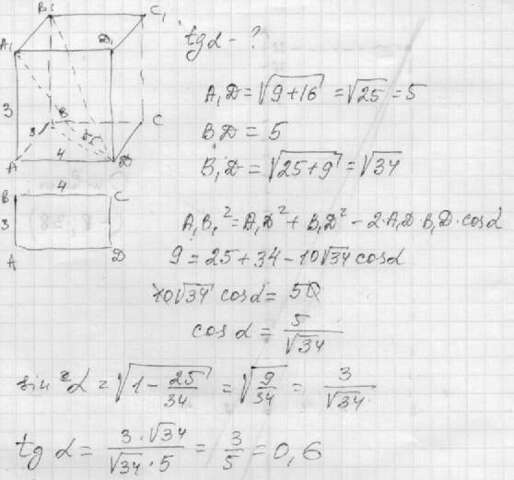 B₁
C₁
A₁
D₁
3
B
C
3
α
A
4
D
4
B
C
3
A
D
tg α - ?
A₁D = √(9+16) = √25 = 5
BD = 5
B₁D = √(25+9) = √34
A₁B₁² = A₁D² + B₁D² - 2·A₁D·B₁D·cos α
9 = 25 + 34 - 10√34 cos α
10√34 cos α = 50
cos α = 5/√34
sin α = √(1 - 25/34) = √(9/34) = 3/√34
tg α = (3·√34)/(√34·5) = 3/5 = 0,6